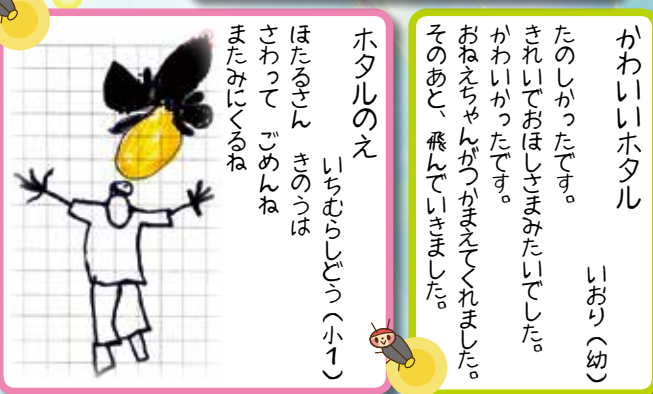 かわいいホタル
いおり（幼）
たのしかったです。
きれいでおほしさまみたいでした。
かわいかったです。
おねえちゃんがつかまえてくれました。
そのあと、飛んでいきました。
ホタルのえ
いちむらしどう（小1）
ほたるさん　きのうは
さわって　ごめんね
またみにくるね